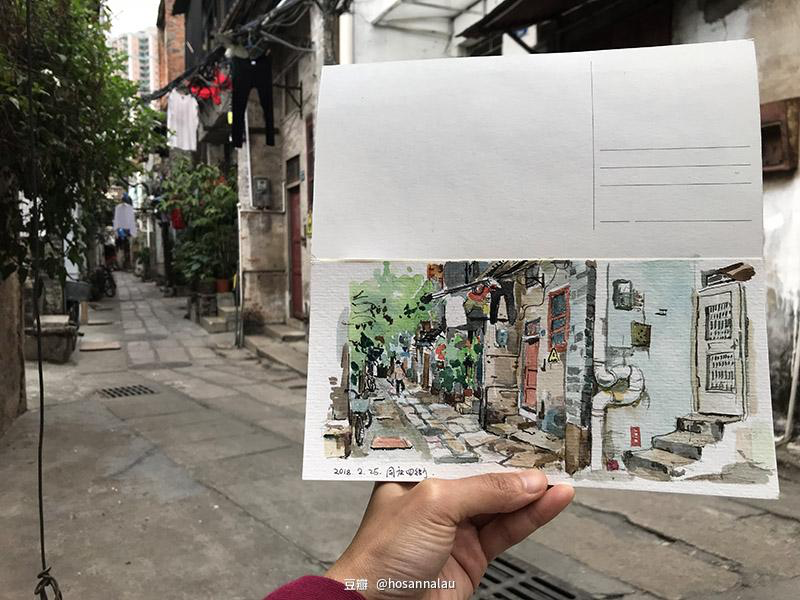 2018. 2. 25. 同文四街
豆瓣 @hosannalau